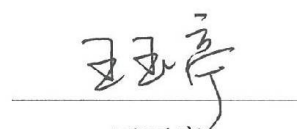 王玉亭